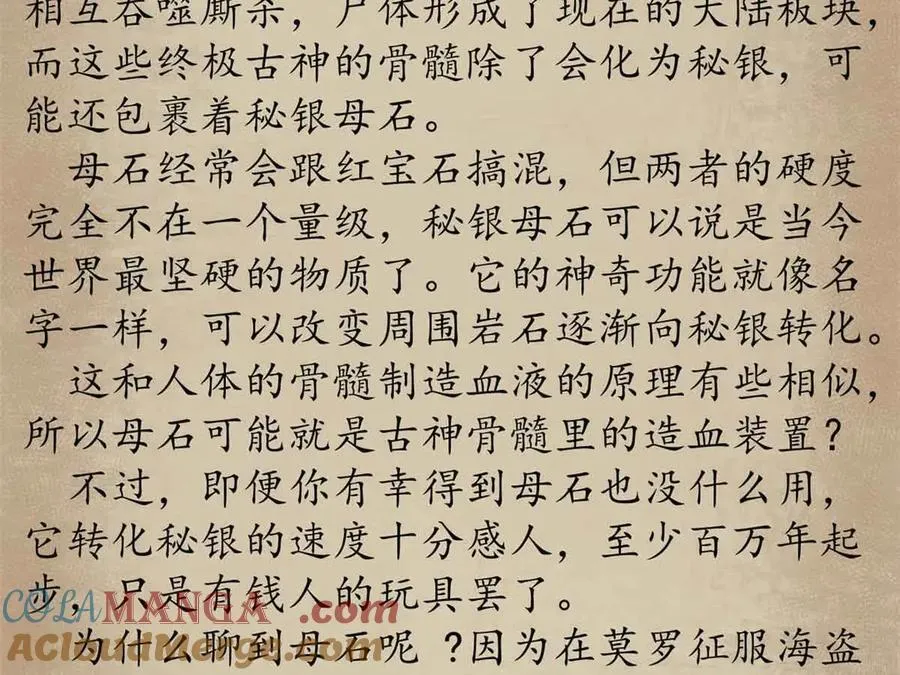 相互吞噬厮杀，尸体形成了现在的大陆板块，
而这些终极古神的骨髓除了会化为秘银，可
能还包裹着秘银母石。
母石经常会跟红宝石搞混，但两者的硬度
完全不在一个量级，秘银母石可以说是当今
世界最坚硬的物质了。它的神奇功能就像名
字一样，可以改变周围岩石逐渐向秘银转化。
这和人体的骨髓制造血液的原理有些相似，
所以母石可能就是古神骨髓里的造血装置？
不过，即便你有幸得到母石也没什么用，
它转化秘银的速度十分感人，至少百万年起
步，只是有钱人的玩具罢了。
COLAMANGA.com
AcloudMerge.com
为什么聊到母石呢？因为在莫罗征服海盗